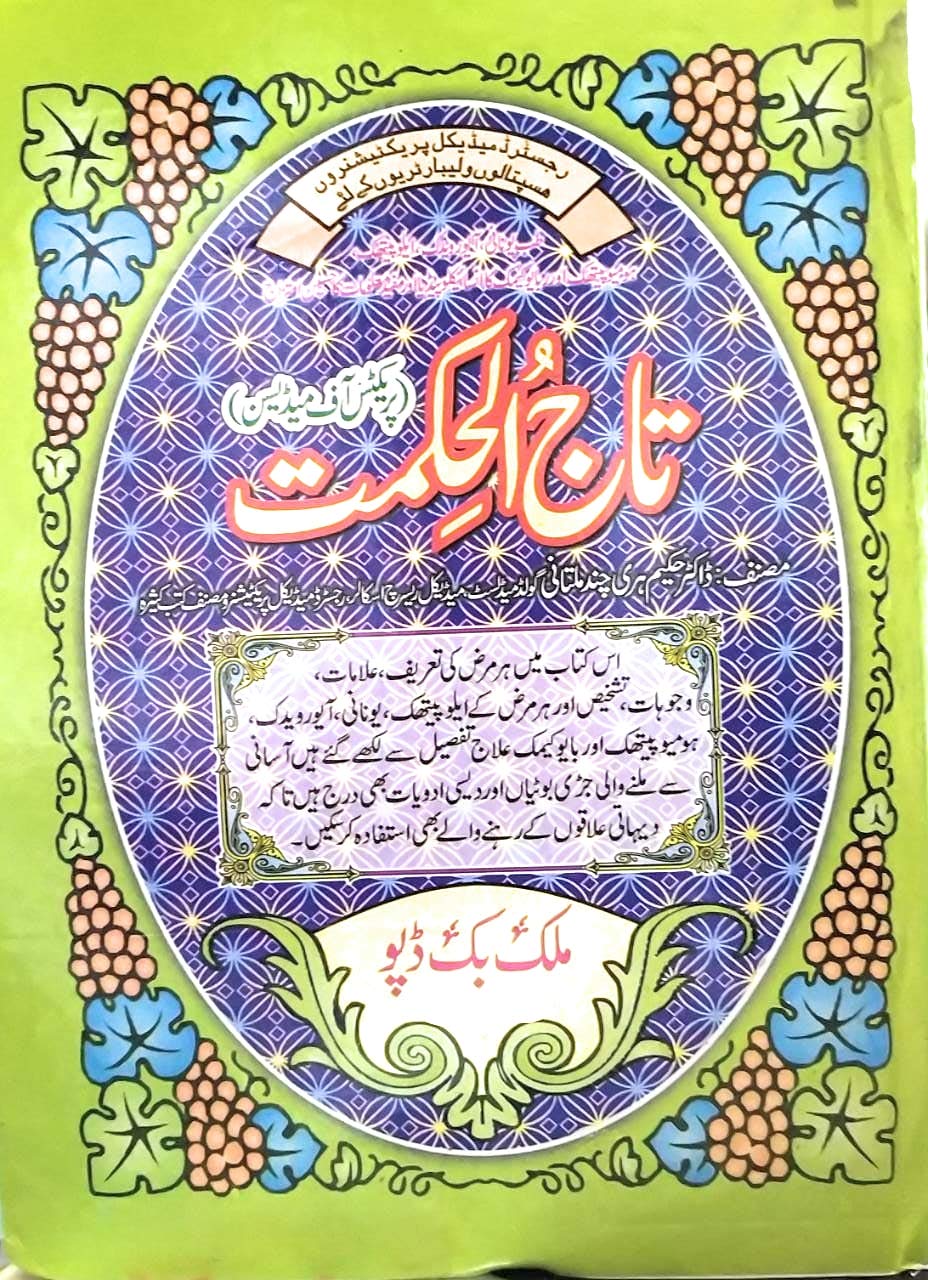 رجسٹرڈ میڈیکل پریکٹیشنروں
ہسپتالوں ولیبارٹریوں کے لئے
طب یونانی، آیورویدک، ایلوپیتھک،
ہومیوپیتھک اور بایوکیمک کا انسائیکلوپیڈیا اور مفید علاجات کا حسین
تاجُ الحکمت
(پریکٹس آف میڈیسن)
مصنف: ڈاکٹر حکیم ہری چند ملتانی گولڈ میڈلسٹ میڈیکل ریسرچ اسکالر، رجسٹرڈ میڈیکل پریکٹیشنر و مصنف کتب کثیرہ
اس کتاب میں ہر مرض کی تعریف، علامات،
وجوہات، تشخیص اور ہر مرض کے ایلوپیتھک، یونانی، آیورویدک،
ہومیوپیتھک اور بایوکیمک علاج تفصیل سے لکھے گئے ہیں آسانی
سے ملنے والی جڑی بوٹیاں اور دیسی ادویات بھی درج ہیں تاکہ
دیہاتی علاقوں کے رہنے والے بھی استفادہ کرسکیں۔
ملک بک ڈپو